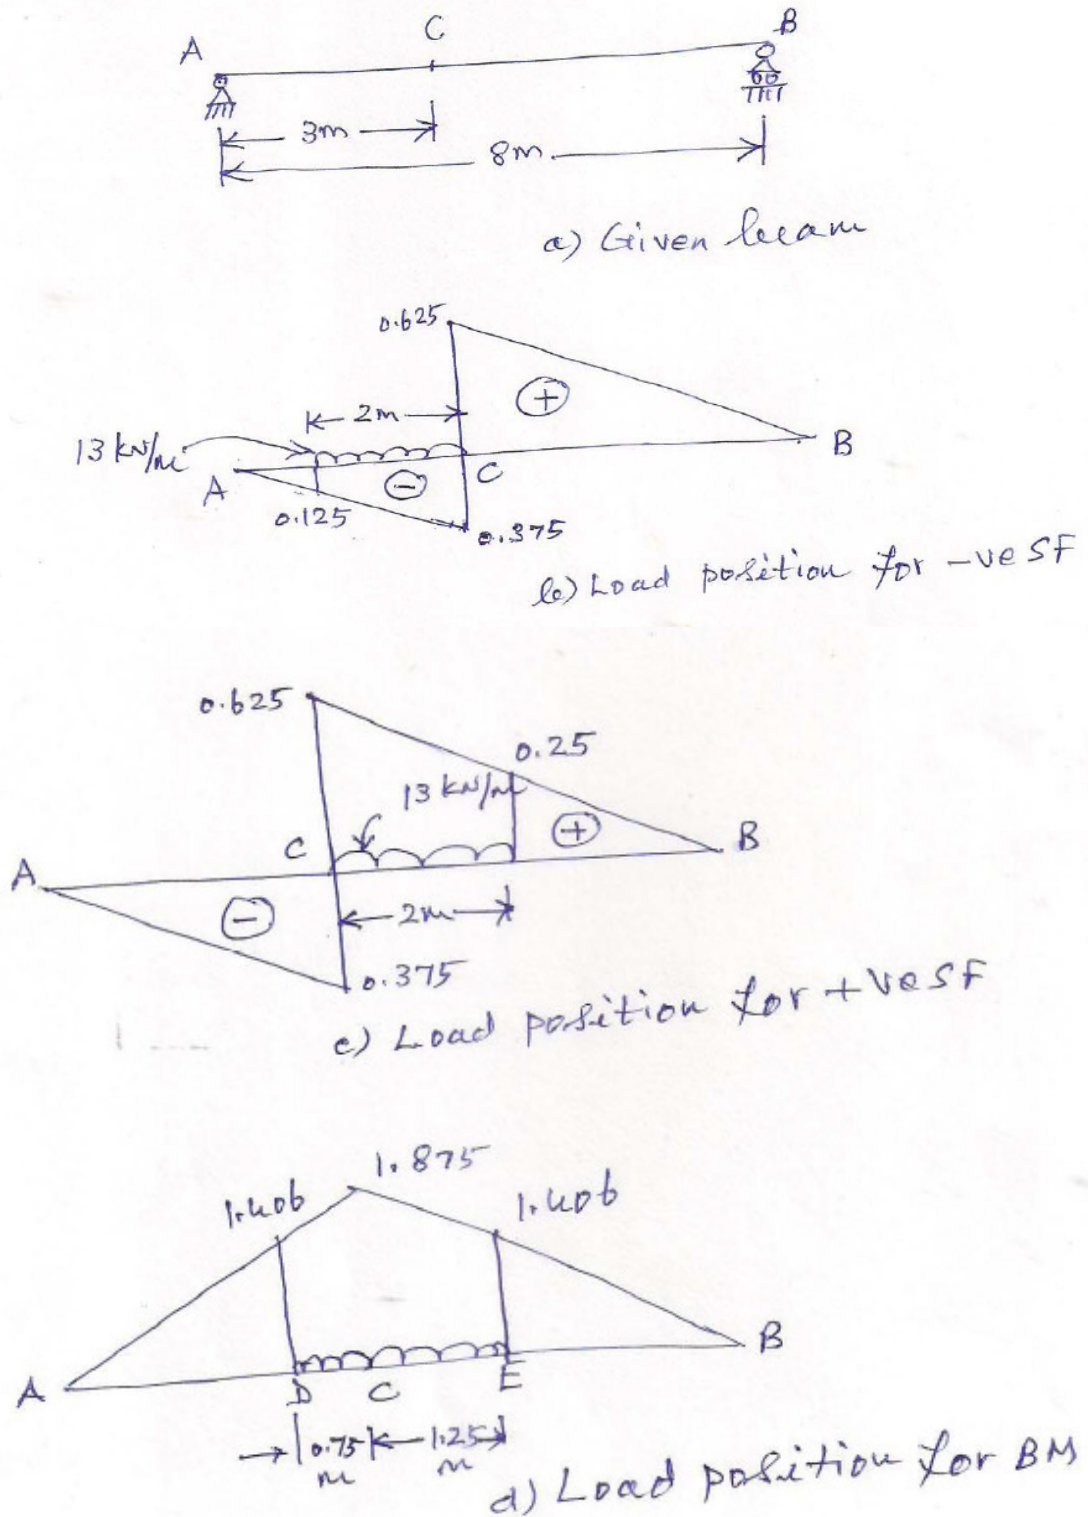 C
A
B
3m
8m.
a) Given beam
0.625
+
2m
13 kN/m
A
-
C
B
0.125
0.375
b) Load position for -ve SF
0.625
0.25
13 kN/m
+
C
B
A
-
2m
0.375
c) Load position for +ve SF
1.875
1.406
1.406
B
A
D
C
E
0.75
m
1.25
m
d) Load position for BM